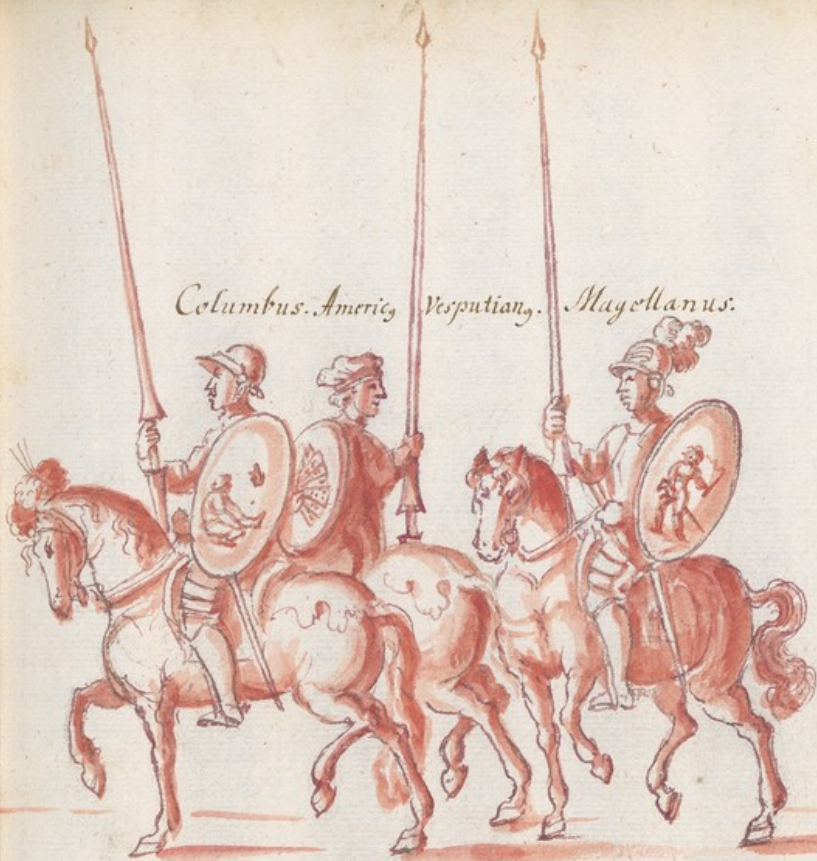 Columbus. Americꝰ Vesputianꝰ. Magellanus.